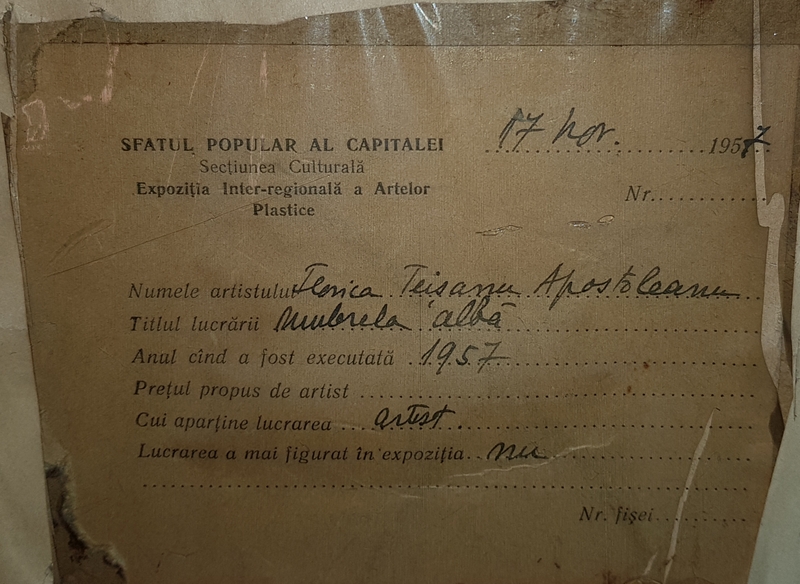 SFATUL POPULAR AL CAPITALEI
Secțiunea Culturală
Expoziția Inter-regională a Artelor
Plastice
17 Nov. 1957
Nr.
Numele artistului Florica Teisanu Apostoleanu
Titlul lucrării Umbrela albă
Anul cînd a fost executată 1957
Prețul propus de artist
Cui aparține lucrarea artist.
Lucrarea a mai figurat în expoziția nu
Nr. fișei